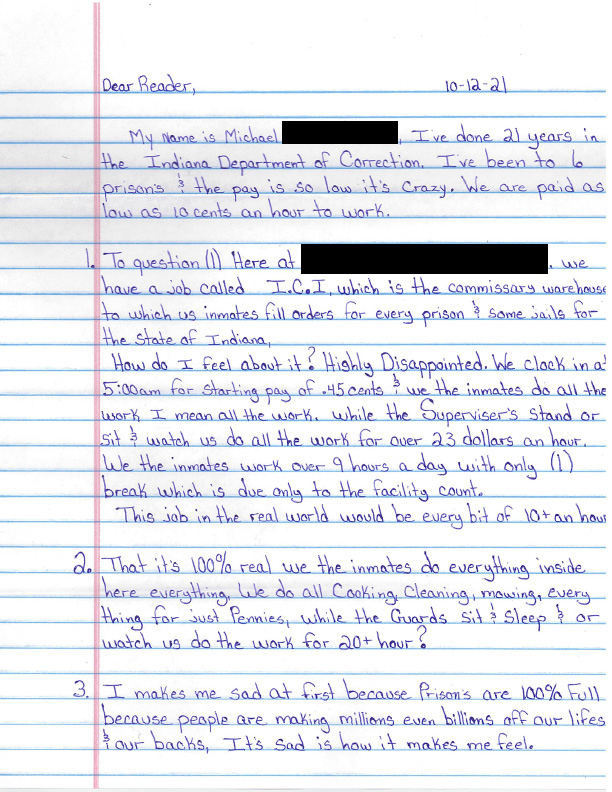 Dear Reader, 10-12-21
My name is Michael , I've done 21 years in
the Indiana Department of Correction. I've been to 6
prison's & the pay is so low it's crazy. We are paid as
low as 10 cents an hour to work.
1. To question (1) Here at . we
have a job called I.C.I, which is the commissary warehouse
to which us inmates fill orders for every prison & some jails for
the State of Indiana,
How do I feel about it? Highly Disappointed. We clock in at
5:00am for starting pay of .45 cents & we the inmates do all the
work I mean all the work. while the Superviser's Stand or
sit & watch us do all the work for over 23 dollars an hour.
We the inmates work over 9 hours a day with only (1)
break which is due only to the facility count.
This job in the real world would be every bit of 10+ an hour
2. That it's 100% real we the inmates do everything inside
here everything. We do all Cooking, Cleaning, mowing, every
thing for just Pennies, while the Guards sit & Sleep & or
watch us do the work for 20+ hour?
3. I makes me sad at first because Prison's are 100% Full
because people are making millions even billions off our lifes
& our backs, It's sad is how it makes me feel.